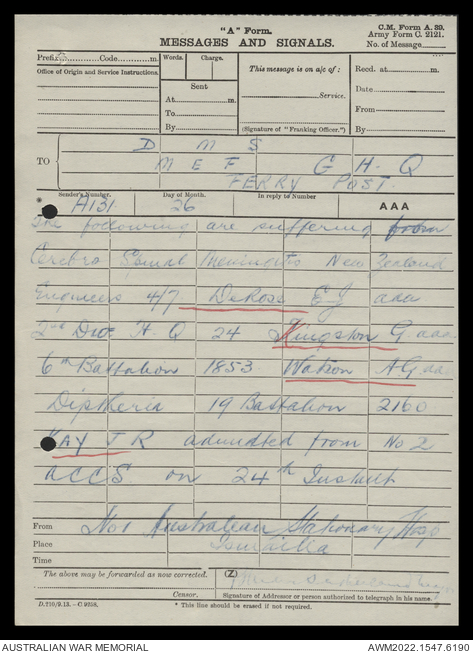 "A" Form.
MESSAGES AND SIGNALS.
C.M. Form A. 39.
Army Form C. 2121.
No. of Message
Prefix Code m.
Office of Origin and Service Instructions.
Words. Charge.
Sent
At m.
To
By
This message is on a/c of :
Service.
(Signature of "Franking Officer.")
Recd. at m.
Date
From
By
TO
D M S
M E F G H Q
FERRY POST.
Sender's Number. Day of Month. In reply to Number
A131 26 AAA
The following are suffering from
Cerebro Spinal Meningitis New Zealand
Engineers 4/7 DeRose EJ aaa
2nd Div H.Q 24 Kingston G aaa
6th Battalion 1853 Watson AG aaa
Diptheria 19 Battalion 2160
KAY J R admitted from No 2
ACCS on 24th Instant
From No 1 Australian Stationary Hosp
Place Ismailia
Time
The above may be forwarded as now corrected. (Z)
Censor. Signature of Addressor or person authorised to telegraph in his name.
D.210/9.13.—C.9258. * This line should be erased if not required.
AUSTRALIAN WAR MEMORIAL AWM2022.1547.6190